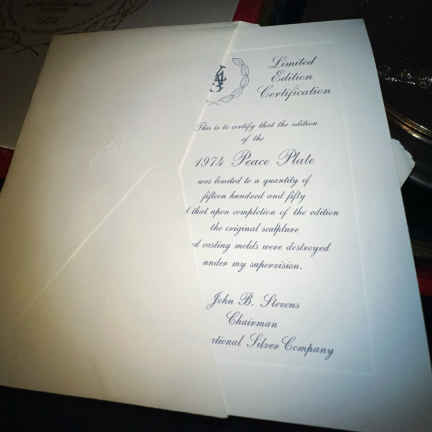 Limited
Edition
Certification
This is to certify that the edition
of the
1974 Peace Plate
was limited to a quantity of
fifteen hundred and fifty
that upon completion of the edition
the original sculpture
casting molds were destroyed
under my supervision.
John B. Stevens
Chairman
Silver Company